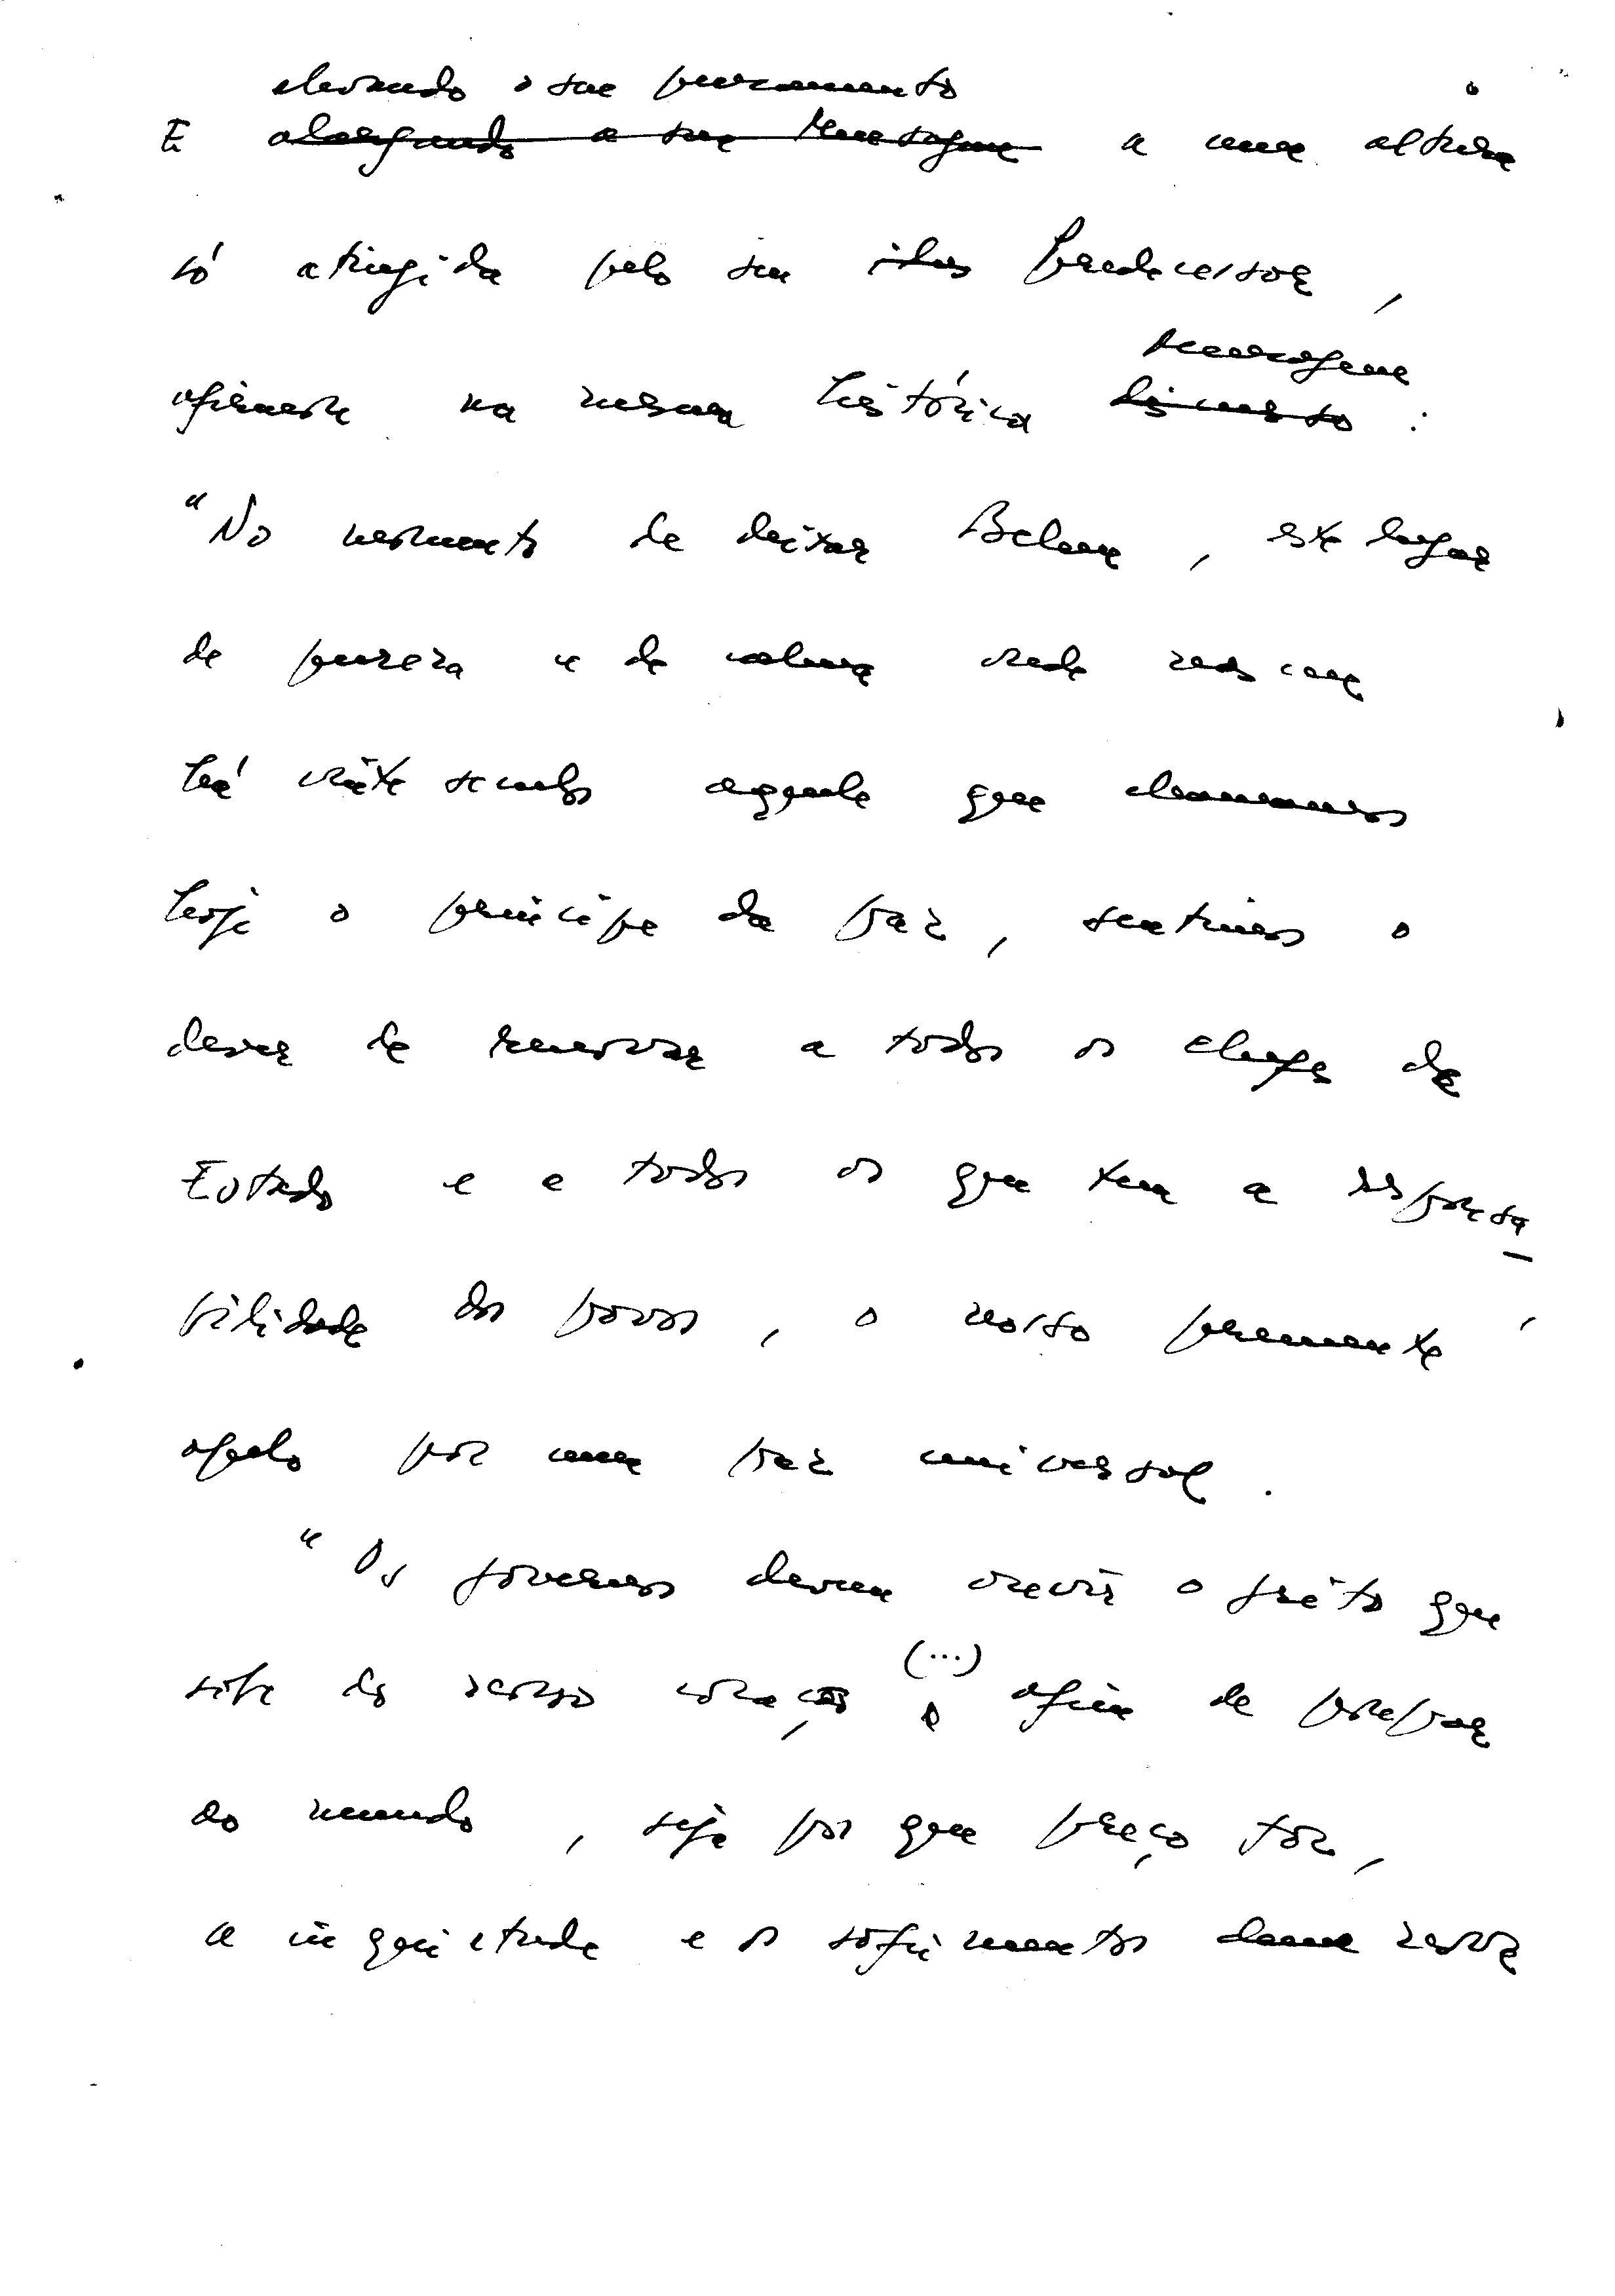 elevando o seu pensamento
E alargando a sua mensagem a uma altura
só atingida pelo seu predecessor,
afirmava na mesma histórica mensagem discurso:
"No momento de deixar Belem, este lugar
de pureza e de calma onde nasceu
há vinte seculos aquele que chamamos
hoje o principe da paz, sentimos o
dever de renovar a todos os chefes de
Estado e a todos os que tem a responsa
bilidade dos povos, o nosso premente
apelo por uma paz universal.
"Os governos devem ouvir o grito que
sobe do nosso coração (...) afim de poupar
ao mundo, seja por que preço for,
a inquietude e os sofrimentos duma nova